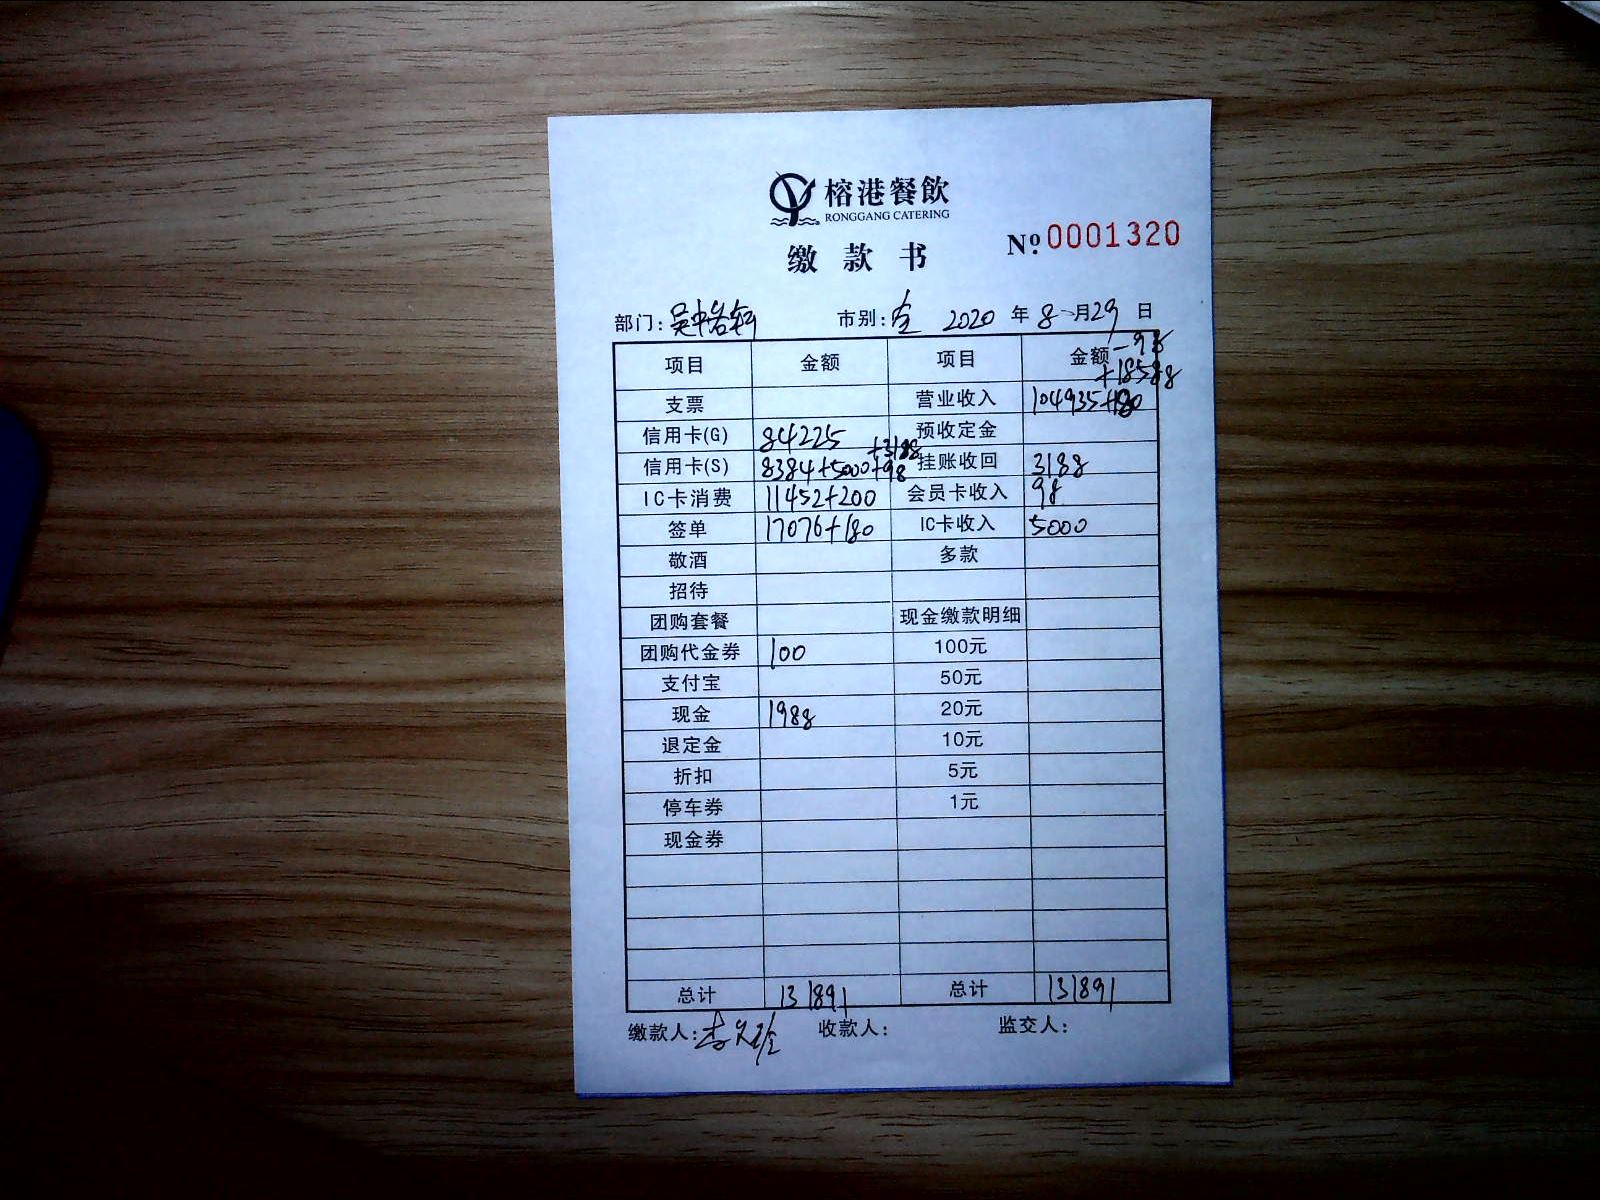 榕港餐飲
RONGGANG CATERING
缴款书
№0001320
部门:吴中 市别:全 2020年8月29日
-98
+18588
项目 金额 项目 金额
支票 营业收入 104935+180
信用卡(G) 84225 预收定金
+3188
信用卡(S) 8384+5000+98 挂账收回 3188
IC卡消费 11452+200 会员卡收入 98
签单 17076+180 IC卡收入 5000
敬酒 多款
招待
团购套餐 现金缴款明细
团购代金券 100 100元
支付宝 50元
现金 1988 20元
退定金 10元
折扣 5元
停车券 1元
现金券
总计 131891 总计 131891
缴款人: 收款人: 监交人: